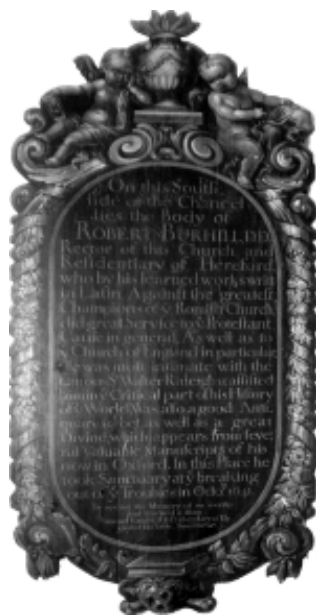 On this South
side of the Chancel
lies the Body of
ROBERT BURHILL, D.D.
Rector of this Church and
Residentiary of Hereford
who by his learned works writ
in Latin Against the greatest
Champions of ye Romish Church
did great Service to ye Protestant
Cause in general, As well as to
ye Church of England in particular
He was most intimate with the
famous Sr Walter Raleigh & assisted
him in ye Critical part of his History
of ye World. Was also a good Anti-
quary & Poet as well as a great
Divine which appears from seve-
ral Valuable Manuscripts of his
now in Oxford. In this Place he
took Sanctuary at ye breaking
out of ye Troubles in Octr. 1641